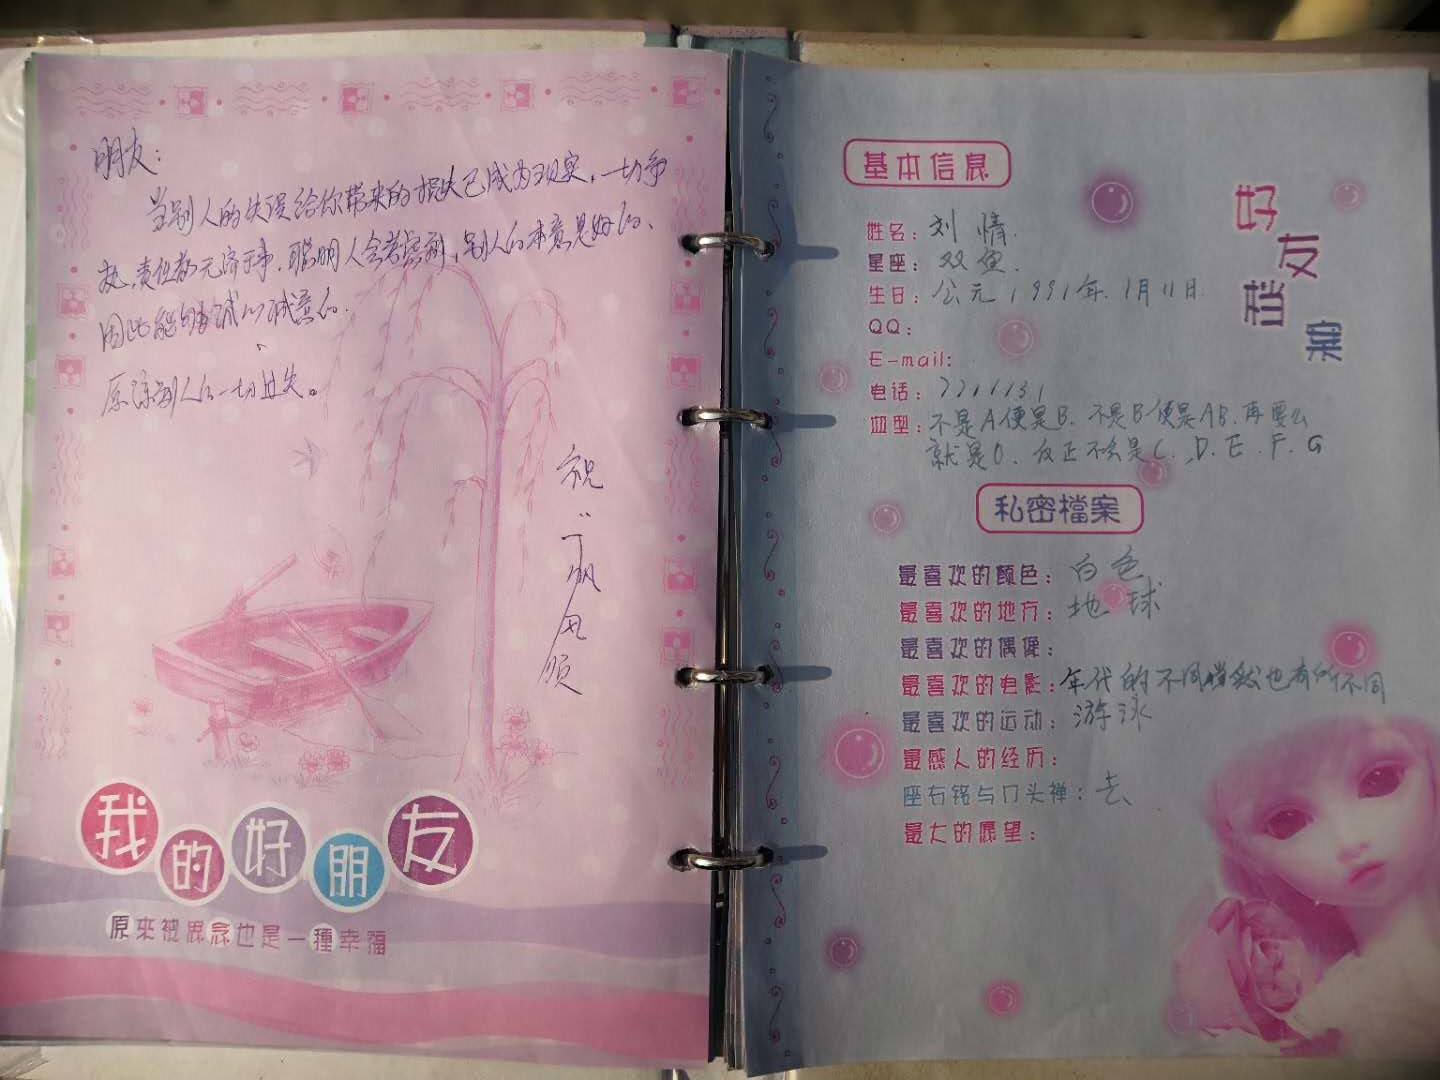 朋友:
当别人的失误给你带来的损失已成为现实,一切争
执、责任都无济于事,聪明人会考虑到,别人的本意是好的、
因此能够诚心诚意的.
原谅别人的一切过失。
祝:
一帆风顺
我的好朋友
原來被思念也是一種幸福
基本信息
好友档案
姓名:刘情.
星座:双鱼.
生日:公元1991年.1月11日.
QQ:
E-mail:
电话:7711131
血型:不是A便是B.不是B便是AB.再要么
就是O.反正不会是C.D.E.F.G
私密檔案
最喜欢的颜色:白色
最喜欢的地方:地球
最喜欢的偶像:
最喜欢的电影:年代的不同当然也有所不同
最喜欢的运动:游泳
最感人的经历:
座右铭与口头禅:去
最大的愿望: